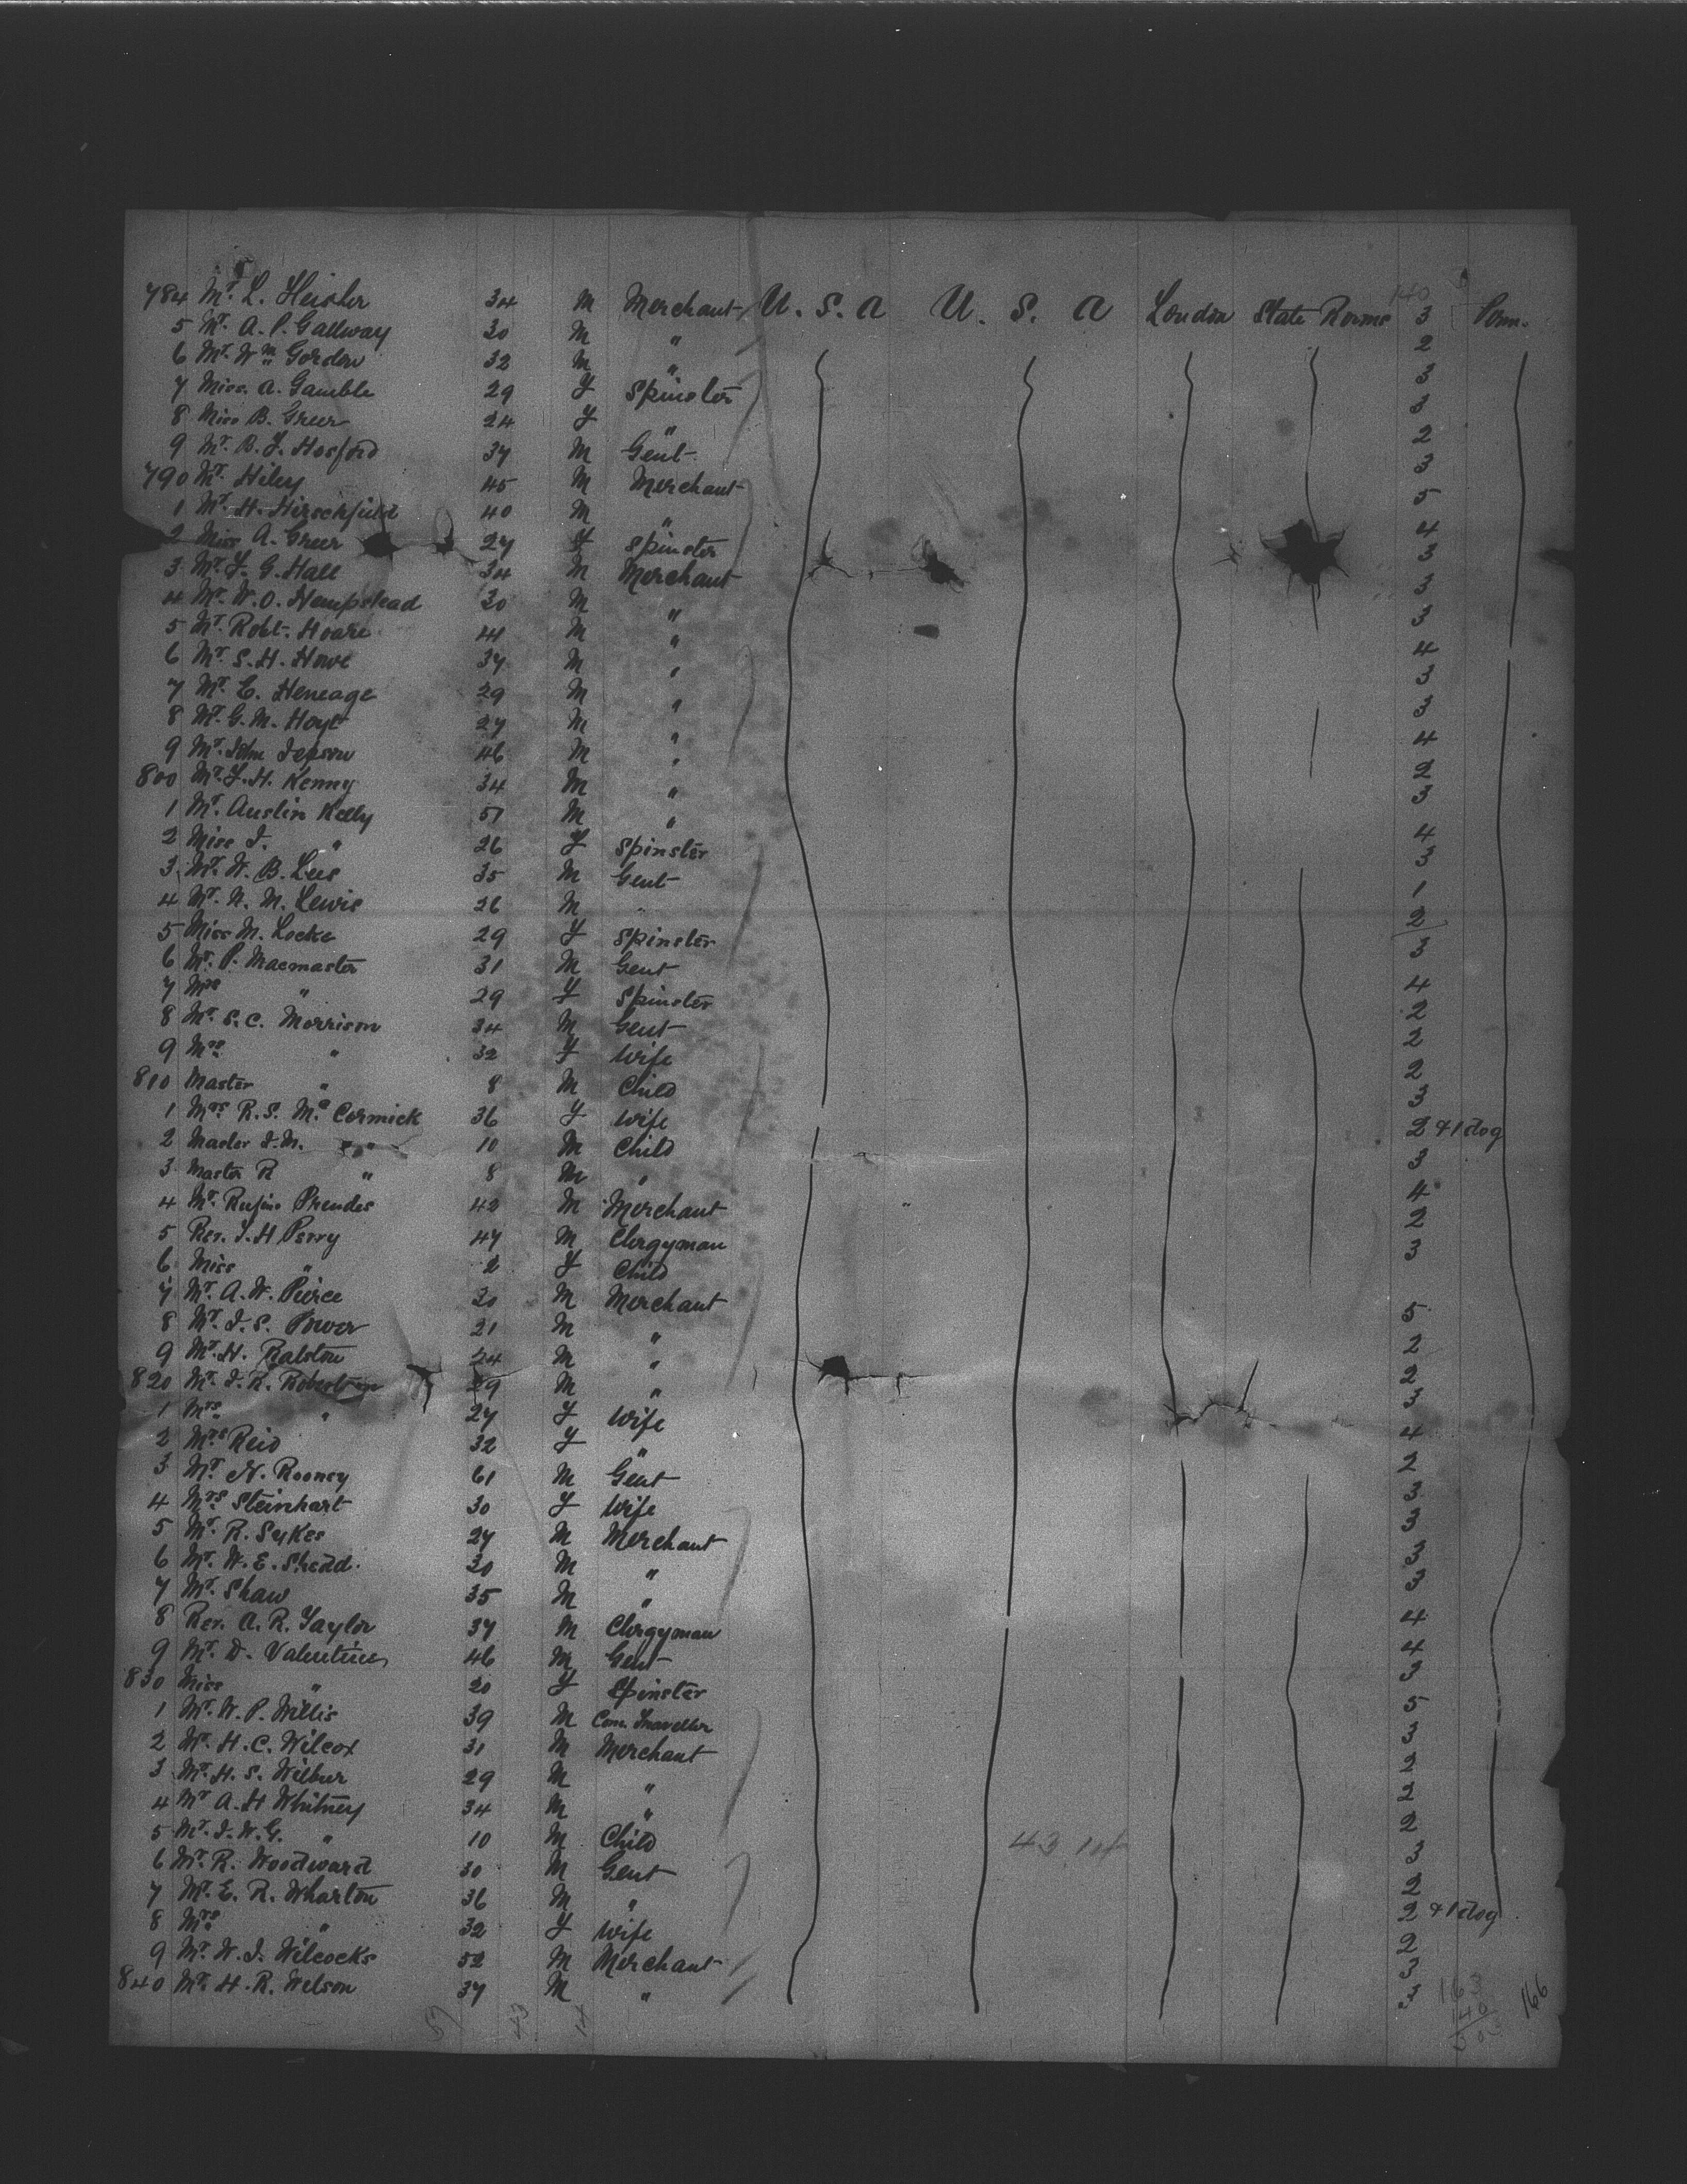 784 Mr. L. Heisler 34 M Merchant U. S. A U. S. A London State Rooms 3 Perm.
5 Mr. A. P. Gallway 30 M " 2
6 Mr. Wm Gordon 32 M " 3
7 Miss. A. Gamble 29 F Spinster 3
8 Miss B. Greer 24 F " 2
9 Mr. B. F. Hosford 37 M Gent 3
790 Mr. Hiley 45 M Merchant 5
1 Mr. H. Hirschfield 40 M " 4
2 Miss A. Greer 27 F Spinster 3
3 Mr. F. G. Hall 34 M Merchant 3
4 Mr. W. O. Hempstead 30 M " 3
5 Mr. Robt. Hoare 41 M " 4
6 Mr. S. H. Howe 37 M " 3
7 Mr. E. Heneage 29 M " 3
8 Mr. G. M. Hoyt 27 M " 4
9 Mr. John Jepson 46 M " 2
800 Mr. F. H. Kenny 34 M " 3
1 Mr. Austin Kelly 51 M " 4
2 Miss J. " 26 F Spinster 3
3 Mr. W. B. Lees 35 M Gent 1
4 Mr. N. M. Lewis 26 M " 2
5 Miss M. Locke 29 F Spinster 3
6 Mr. P. Macmaster 31 M Gent 4
7 Mrs " 29 F Spinster 2
8 Mr. S. C. Morrison 34 M Gent 2
9 Mrs " 32 F Wife 2
810 Master " 8 M Child 3
1 Mrs R. S. Mc Cormick 36 F Wife 2 & 1 dog
2 Master J. M. " 10 M Child 3
3 Master R " 8 M " 4
4 Mr. Rufino Prendes 42 M Merchant 2
5 Rev. J. H Perry 47 M Clergyman 3
6 Miss " 2 F Child
7 Mr. A. W. Peirce 30 M Merchant 5
8 Mr. J. S. Power 21 M " 2
9 Mr. H. Ralston 24 M " 2
820 Mr. J. R. Robertson 29 M " 3
1 Mrs " 27 F Wife 4
2 Mrs Reid 32 F " 2
3 Mr. N. Rooney 61 M Gent 3
4 Mrs Steinhart 30 F Wife 3
5 Mr. R. Sykes 27 M Merchant 3
6 Mr. W. E. Shedd. 30 M " 3
7 Mr. Shaw 35 M " 4
8 Rev. A. R. Taylor 37 M Clergyman 4
9 Mr. D. Valentine 46 M Gent 3
830 Miss " 20 F Spinster 5
1 Mr. W. P. Willis 39 M Com. Traveller 3
2 Mr. H. C. Wilcox 31 M Merchant 2
3 Mr. H. S. Wilbur 29 M " 2
4 Mr A. H Whitney 34 M " 2
5 Mr. J. W. G. " 10 M Child 3
6 Mr. R. Woodward 30 M Gent 2
7 Mr. E. R. Wharton 36 M " 2 & 1 dog
8 Mrs " 32 F Wife 2
9 Mr. W. J. Wilcocks 52 M Merchant 3
840 Mr. H. R. Wilson 37 M " 3
163
140
303
166